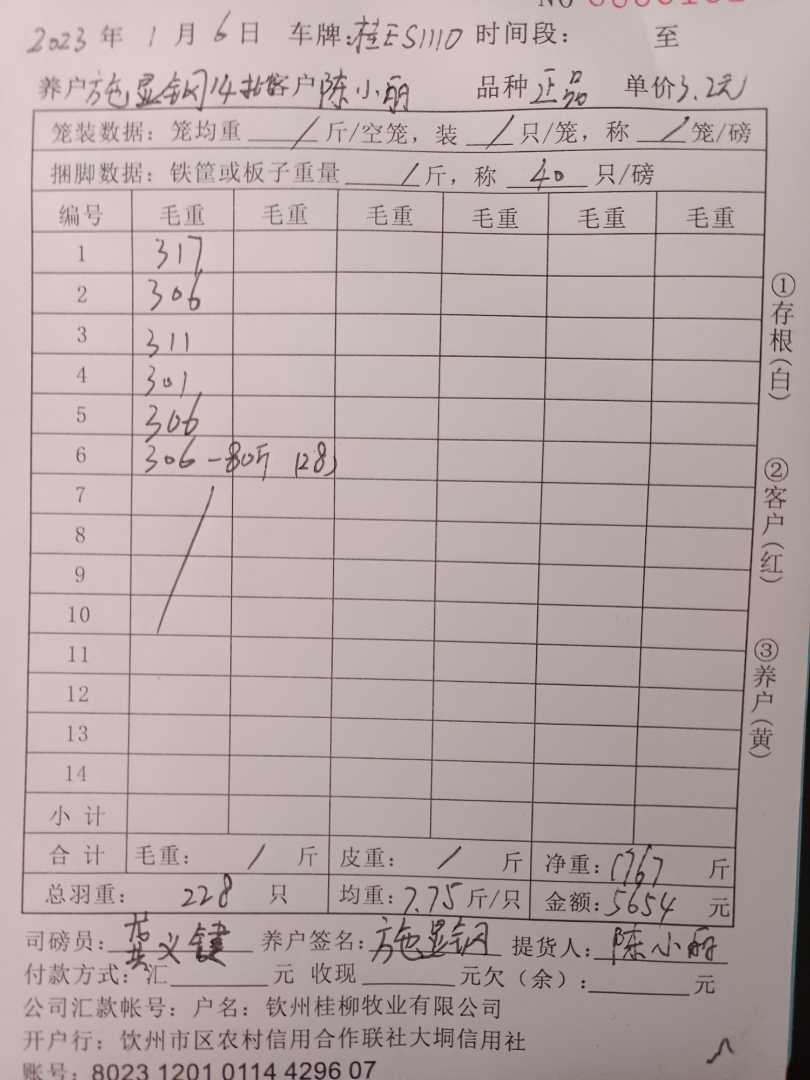 2023 年 1 月 6 日 车牌:桂ES1110 时间段: 至
养户 施显钢14批 客户 陈小丽 品种 正品 单价 3.2元
笼装数据: 笼均重 / 斤/空笼, 装 / 只/笼, 称 / 笼/磅
捆脚数据: 铁筐或板子重量 / 斤, 称 40 只/磅
编号 毛重 毛重 毛重 毛重 毛重 毛重
1 317
2 306
3 311
4 301
5 306
6 306-80斤 (28)
7
8
9
10
11
12
13
14
小计
合计 毛重: / 斤 皮重: / 斤 净重: 1767 斤
总羽重: 228 只 均重: 7.75 斤/只 金额: 5654 元
司磅员: 义键 养户签名: 施显钢 提货人: 陈小丽
付款方式: 汇 元 收现 元 欠(余): 元
公司汇款帐号: 户名: 钦州桂柳牧业有限公司
开户行: 钦州市区农村信用合作联社大垌信用社
账号: 8023 1201 0114 4296 07
①存根(白)
②客户(红)
③养户(黄)